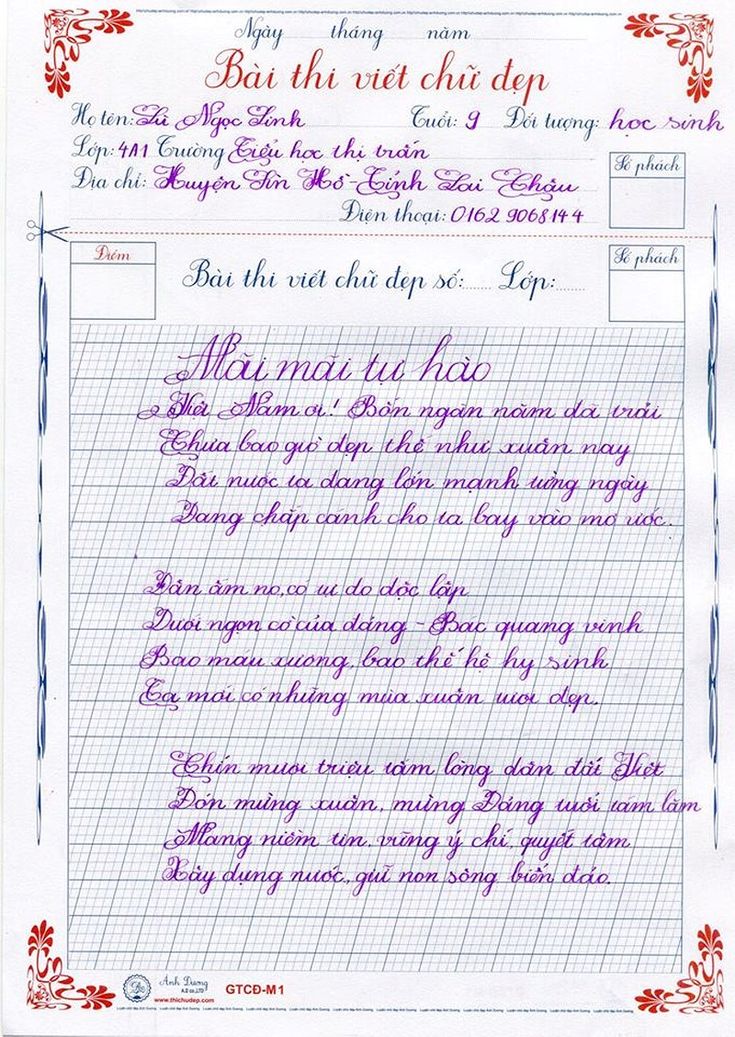 Ngày tháng năm
Bài thi viết chữ đẹp
Họ tên: Lù Ngọc Linh Tuổi: 9 Đối tượng: học sinh
Lớp: 4A1 Trường Tiểu học thị trấn
Số phách
Địa chỉ: Huyện Sìn Hồ - Tỉnh Lai Châu
Điện thoại: 0162 9068144
Điểm
Bài thi viết chữ đẹp số:...... Lớp:......
Số phách
Mãi mãi tự hào
Việt Nam ơi! Bốn ngàn năm đã trải
Chưa bao giờ đẹp thế như xuân nay
Đất nước ta đang lớn mạnh từng ngày
Đang chắp cánh cho ta bay vào mơ ước.
Dân ấm no, có tự do độc lập
Dưới ngọn cờ của đảng - Bác quang vinh
Bao máu xương, bao thế hệ hy sinh
Ta mới có những mùa xuân tươi đẹp.
Chín mươi triệu tấm lòng dân đất Việt
Đón mừng xuân, mừng Đảng tuổi tám lăm
Mang niềm tin, vững ý chí, quyết tâm
Xây dựng nước, giữ non sông biển đảo.
Ánh Dương
A.D co.,LTD
www.thichudep.com
GTCĐ-M1